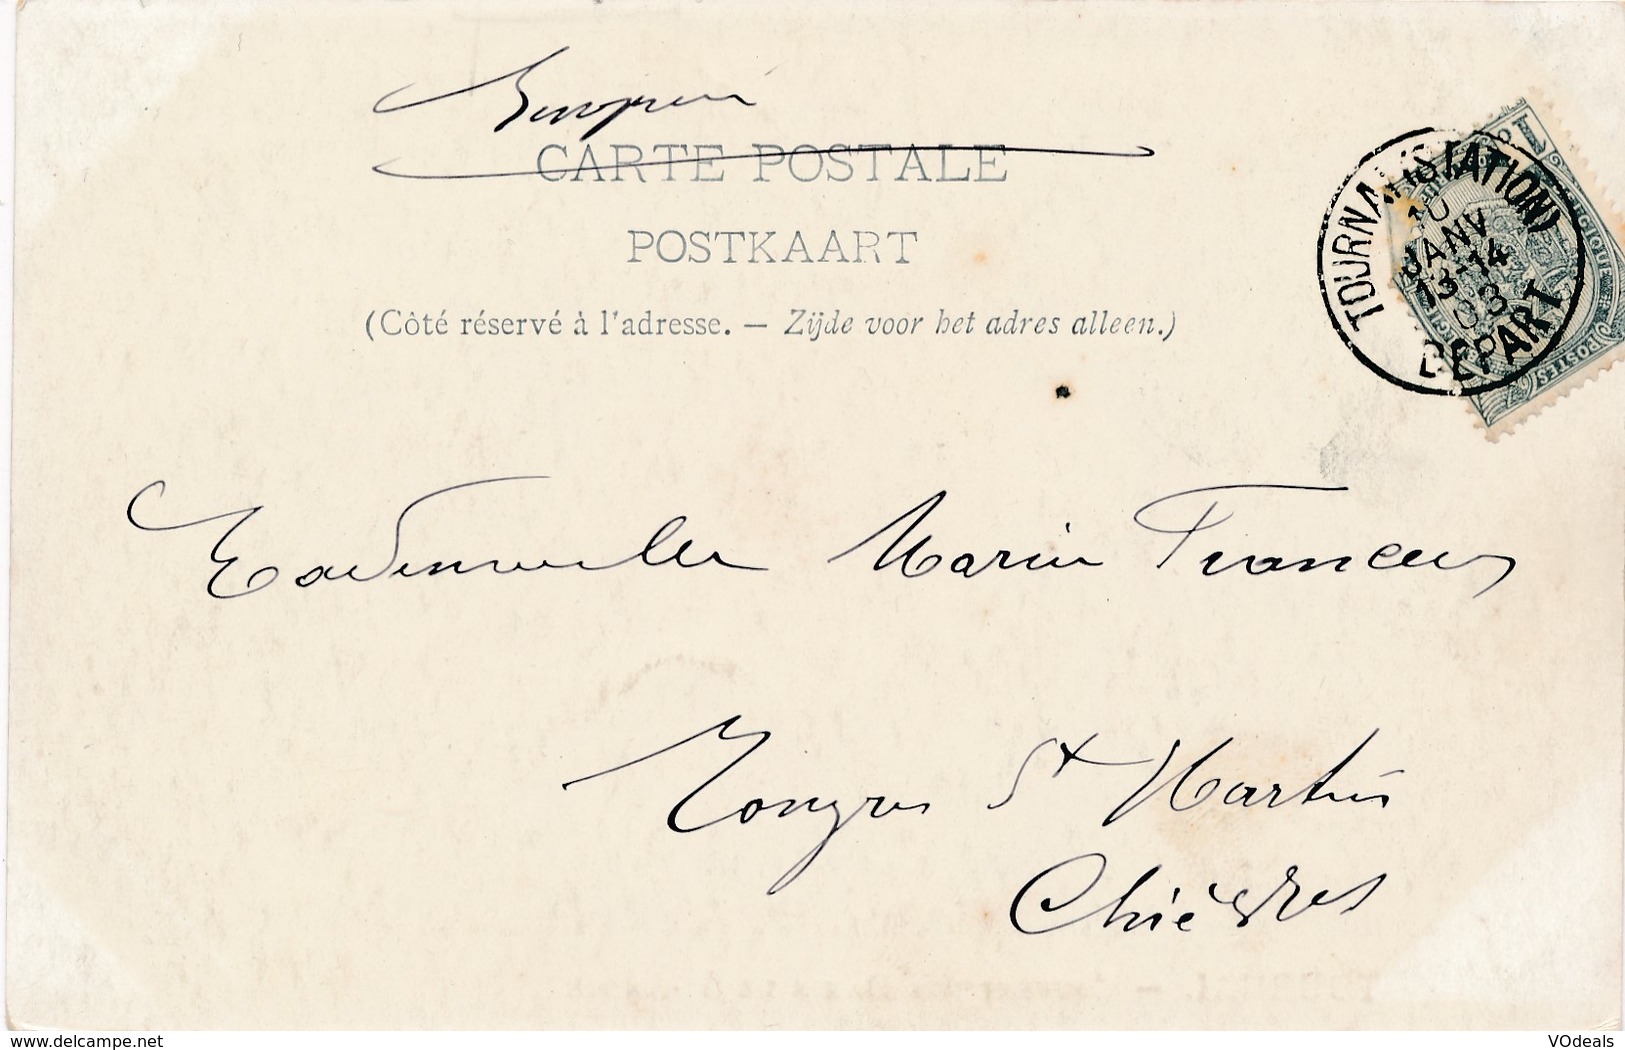 CARTE POSTALE
POSTKAART
(Côté réservé à l'adresse. — Zijde voor het adres alleen.)
TOURNAI (STATION)
10
JANV
13-14
03
DEPART
POSTES
Mademoiselle Maria
Tongres St Martin
Chièvres
www.delcampe.net
VOdeals